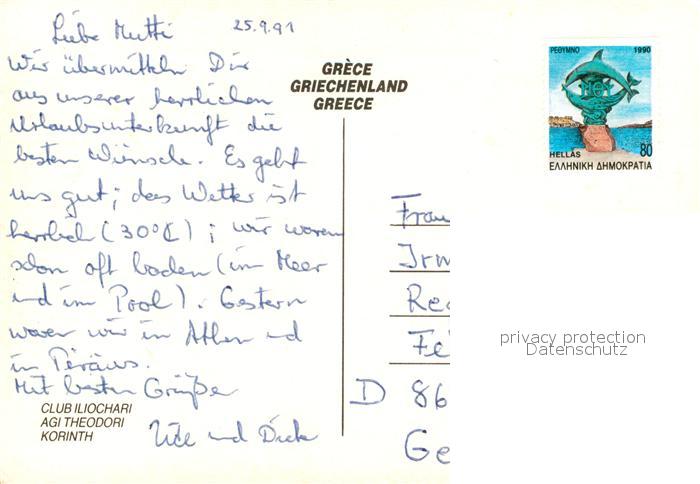 Liebe Mutti 25.9.91
Wir übermitteln Dir
aus unserer herrlichen
Urlaubsunterkunft die
besten Wünsche. Es geht
uns gut; das Wetter ist
herrlich (30°C); wir waren
schon oft baden (im Meer
und im Pool). Gestern
waren wir in Athen und
in Piräus.
Mit besten Grüßen
Ute und Dick
CLUB ILIOCHARI
AGI THEODORI
KORINTH
GRÈCE
GRIECHENLAND
GREECE
ΡΕΘΥΜΝΟ 1990
HELLAS 80
ΕΛΛΗΝΙΚΗ ΔΗΜΟΚΡΑΤΙΑ
Frau
Irm
Fe
D 86
Ge
privacy protection
Datenschutz